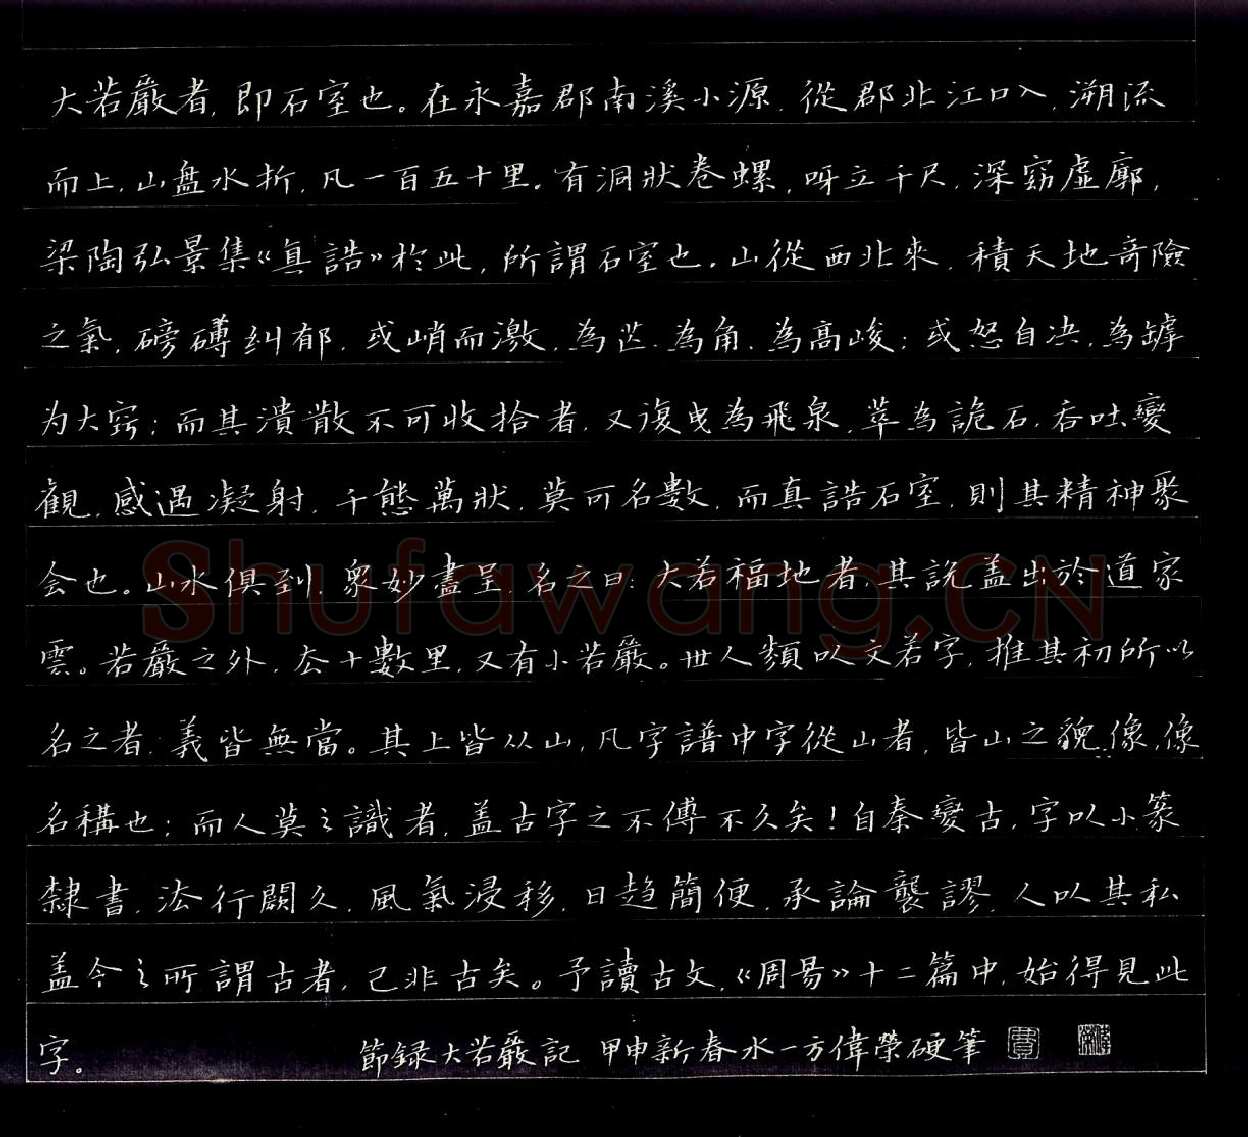 大若巖者，即石室也。在永嘉郡南溪小源，從郡北江口入，溯流
而上，山盘水折，凡一百五十里。有洞狀卷螺，呀立千尺，深窈虛廓，
梁陶弘景集《真誥》於此，所謂石室也。山從西北來，積天地奇險
之氣，磅礴糾郁，或峭而激，為芒，為角，為高峻；或怒自决，為罅
为大窍；而其潰散不可收拾者，又復曳為飛泉，萃為詭石，吞吐變
觀，感遇凝射，千態萬狀，莫可名數，而真誥石室，則其精神聚
会也。山水俱到，衆妙盡呈，名之曰：大若福地者，其說盖出於道家
雲。若巖之外，去十數里，又有小若巖。世人類以文若字，推其初所以
名之者，義皆無當。其上皆从山，凡字譜中字從山者，皆山之貌像，像
名稱也；而人莫之識者，盖古字之不傳不久矣！自秦變古，字以小篆
隸書，法行闕久，風氣浸移，日趋簡便，承論襲謬，人以其私
盖今之所謂古者，己非古矣。予讀古文，《周易》十二篇中，始得見此
字。 節録大若巖記 甲申新春水一方偉榮硬筆
Shufawang.CN